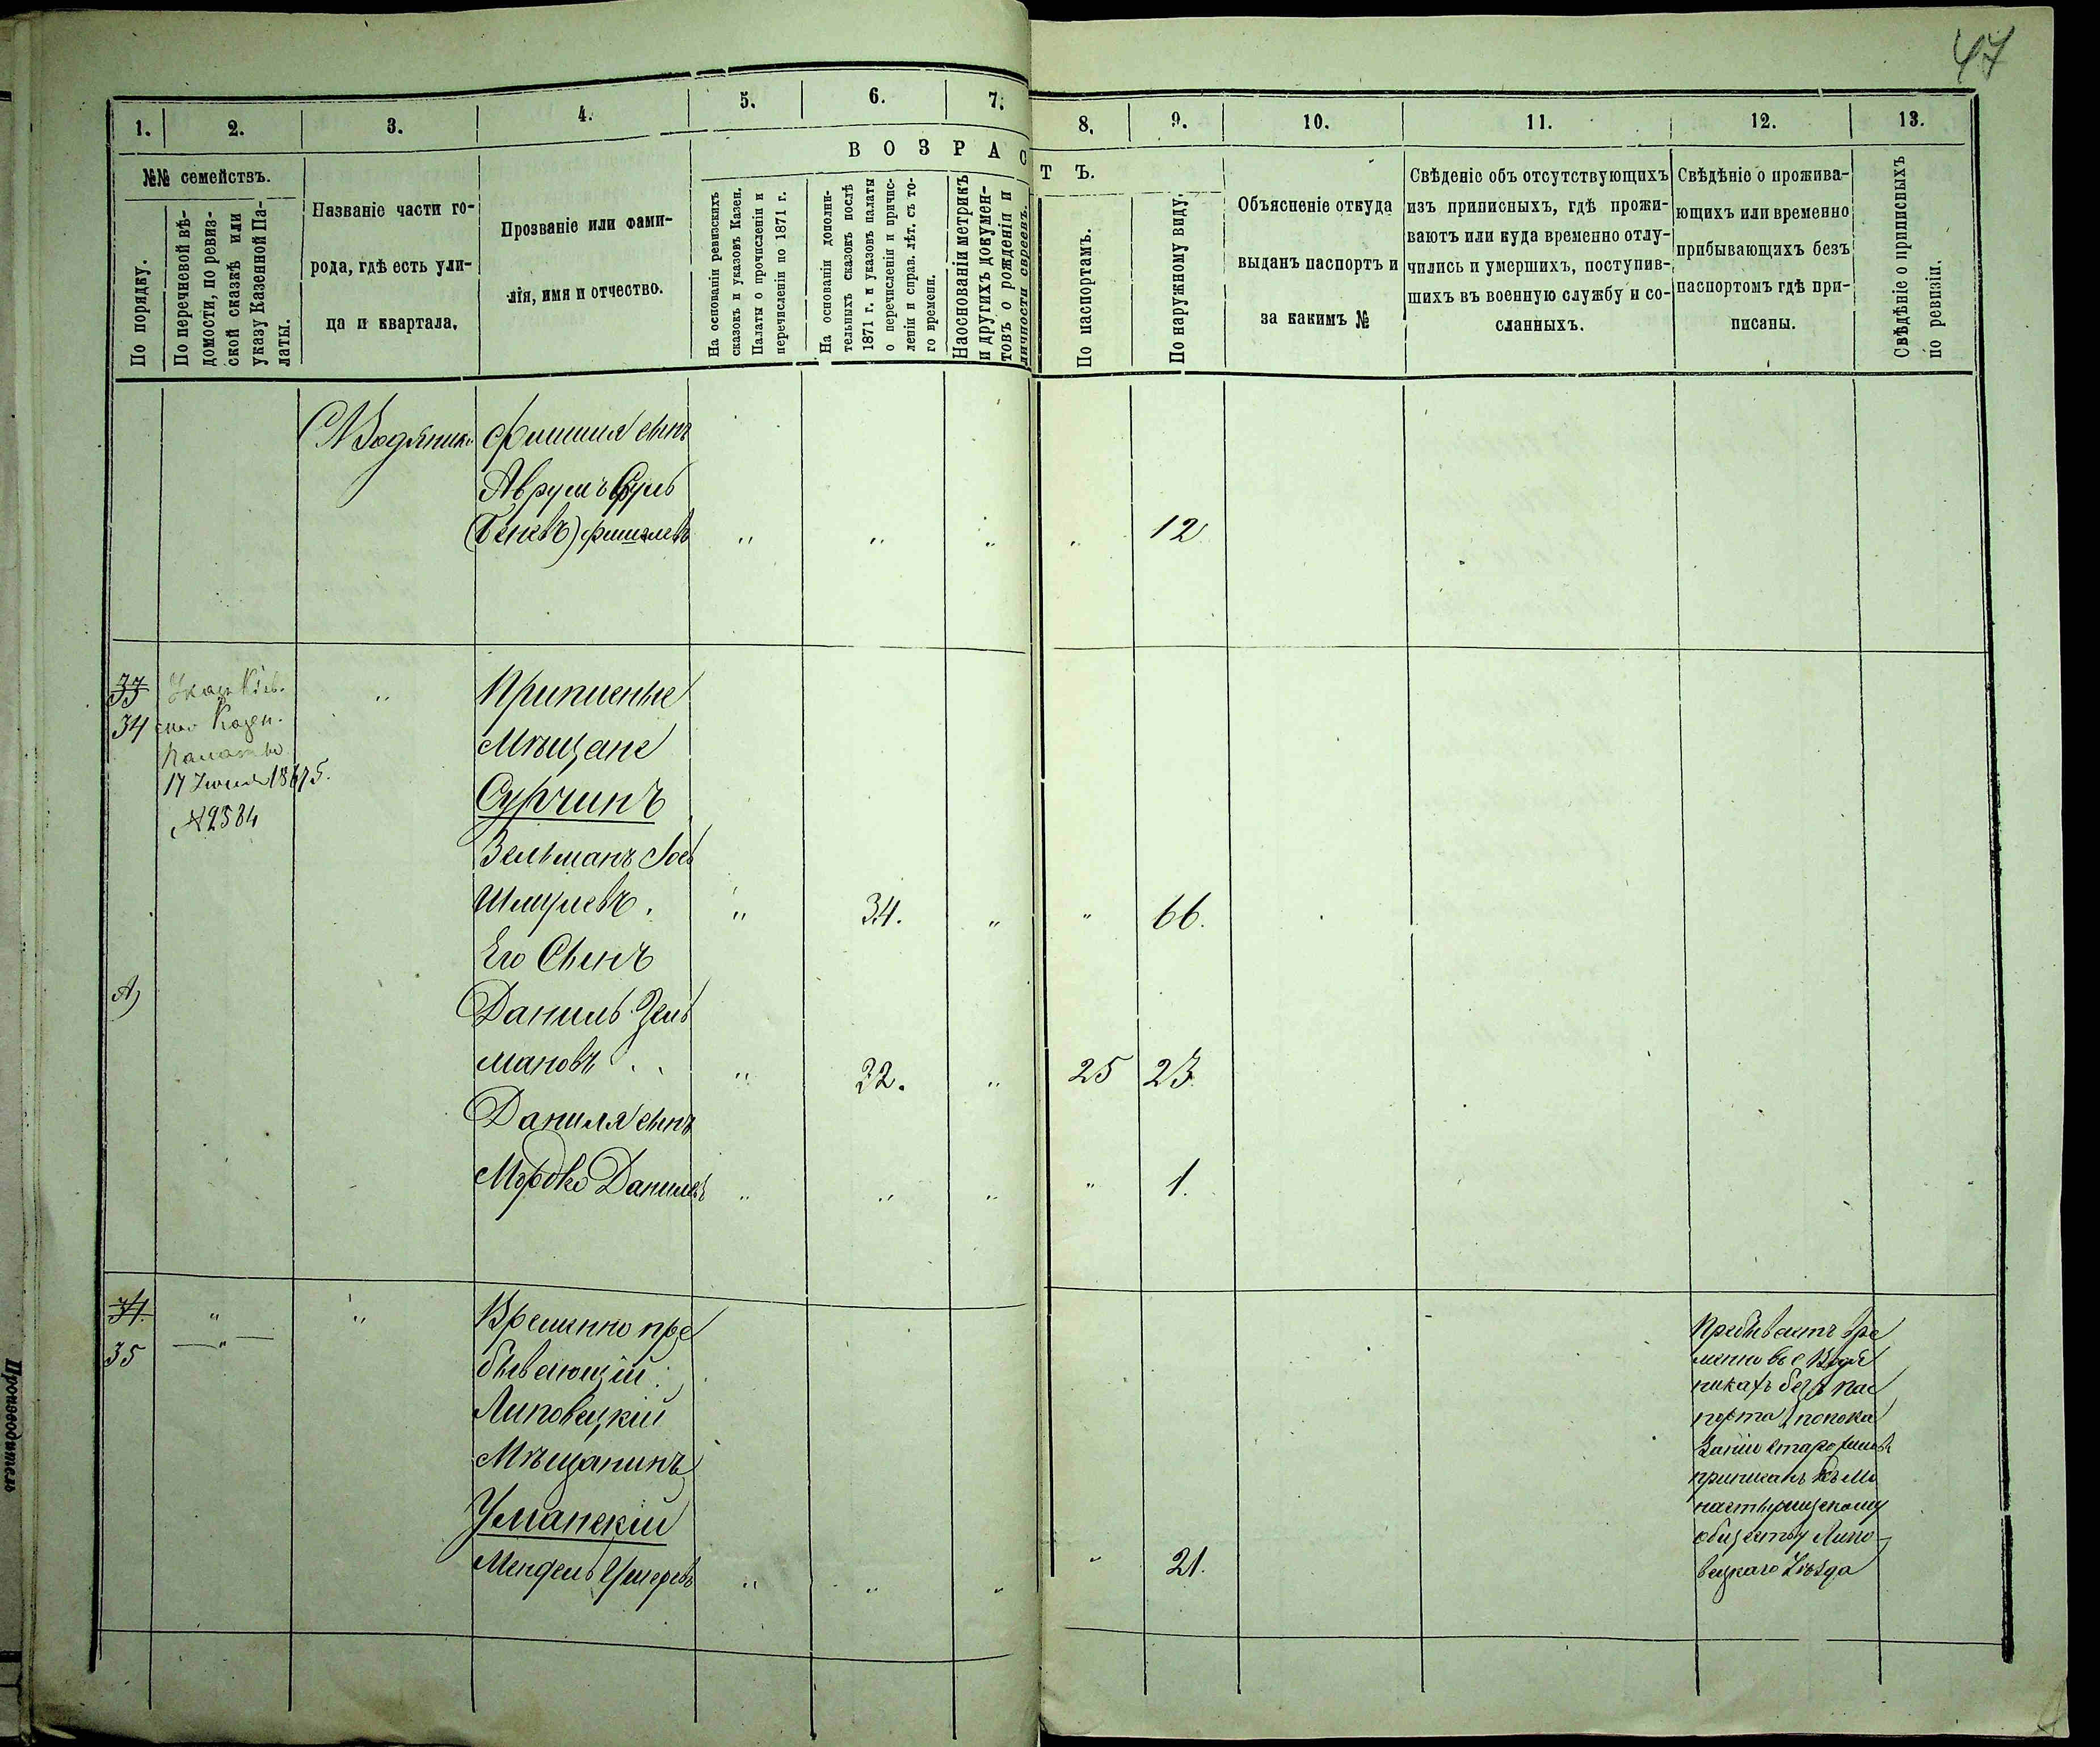 47
1. 2. 3. 4. 5. 6. 7. 8. 9. 10. 11. 12. 13.
ВОЗРАСТЪ.
№№ семействъ.
По порядку.
По перечневой вѣ-
домости, по ревиз-
ской сказкѣ или
указу Казенной Па-
латы.
Названіе части го-
рода, гдѣ есть ули-
ца и квартала.
Прозваніе или фами-
лія, имя и отчество.
На основаніи ревизскихъ
сказокъ и указовъ Казен.
Палаты о причисленіи и
перечисленіи по 1871 г.
На основаніи дополни-
тельныхъ сказокъ послѣ
1871 г. и указовъ палаты
о перечисленіи и причис-
леніи и справ. лѣт. съ то-
го времени.
На основаніи метрикъ
и другихъ докумен-
товъ о рожденіи и
личности евреевъ.
По паспортамъ.
По наружному виду.
Объясненіе откуда
выданъ паспортъ и
за какимъ №
Свѣденіе объ отсутствующихъ
изъ приписныхъ, гдѣ прожи-
ваютъ или куда временно отлу-
чились и умершихъ, поступив-
шихъ въ военную службу и со-
сланныхъ.
Свѣдѣніе о прожива-
ющихъ или временно
прибывающихъ безъ
паспортомъ гдѣ при-
писаны.
Свѣдѣніе о приписныхъ
по ревизіи.
Фишиля сынъ
Аврумъ Сруль
(Беневъ) Фишелевъ " " " " 12
33
34
Указъ Кіев.
ской Казен.
Палаты
17 Іюня 1875.
№ 2584
"
Приписные
Мѣщане
Сурчинъ
Зельманъ Іось
Шмулевъ. " 34. " " 66.
Его Сынъ
А)
Даниль Зель
мановъ " 22. " 25 23
Даниля сынъ
Мордко Данилевъ " " " " 1.
34.
35
" "
"
Временно пре
бывающій
Липовецкій
Мѣщанинъ
Уманскій
Мендель Ушеревъ " " " " 21.
Пребываетъ вре
менно въ с Водя
никахъ безъ пас
порта по пока
занію старожиловъ
приписанъ къ Мо
настырищскому
обществу Липо-
вецкаго Уѣзда
Производитель